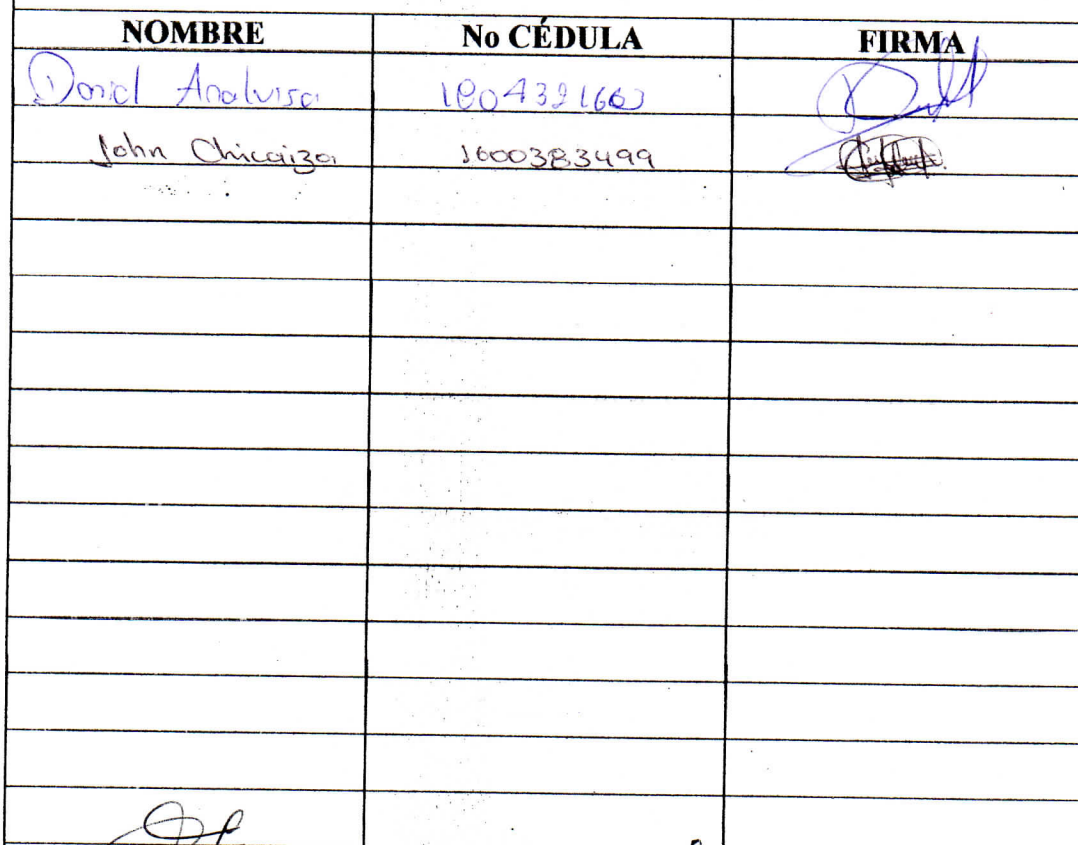 NOMBRE No CÉDULA FIRMA
Daniel Analuisa 1804321663
John Chicaiza 1600383499